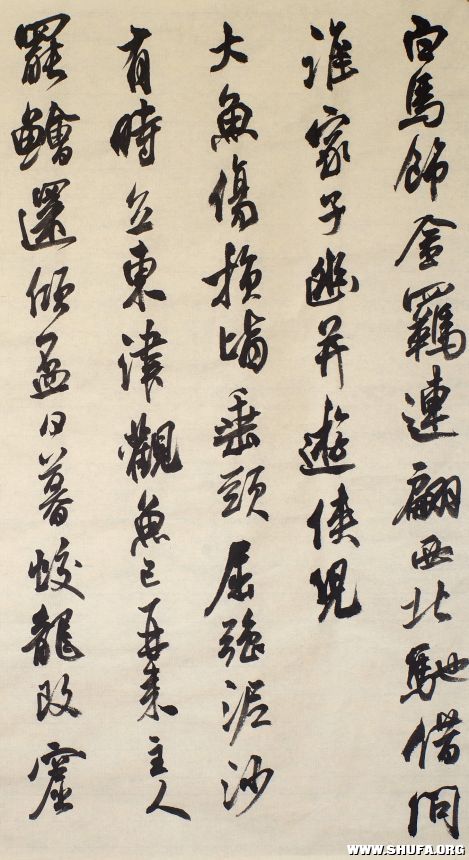 白馬飾金羈連翩西北馳借問
誰家子幽并遊俠兒
大魚傷損皆垂頭屈強泥沙
有時立東津觀魚已再來主人
罷鱠還傾盃日暮蛟龍改窟
WWW.SHUFA.ORG